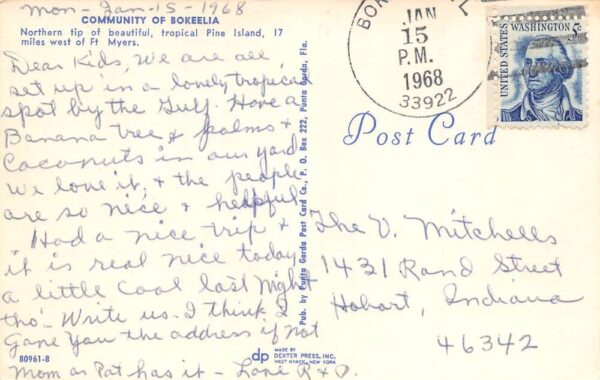 Mon - Jan - 15 - 1968
COMMUNITY OF BOKEELIA
Northern tip of beautiful, tropical Pine Island, 17
miles west of Ft Myers.
Dear Kids, We are all
set up in a lovely tropical
spot by the Gulf. Have a
Banana tree & palms &
Cocoanuts in our yard
We love it, & the people
are so nice & helpful
Had a nice trip &
it is real nice today
a little cool last night
tho'. Write us. I think I
gave you the address if not
Mom or Pat has it - Love R & D.
80961-B
dp MADE BY
DEXTER PRESS, INC.
WEST NYACK, NEW YORK
Pub. by Punta Gorda Post Card Co., P. O. Box 222, Punta Gorda, Fla.
JAN
15
P.M.
1968
33922
UNITED STATES
WASHINGTON 5c
Post Card
The V. Mitchells
1431 Rand Street
Hobart, Indiana
46342